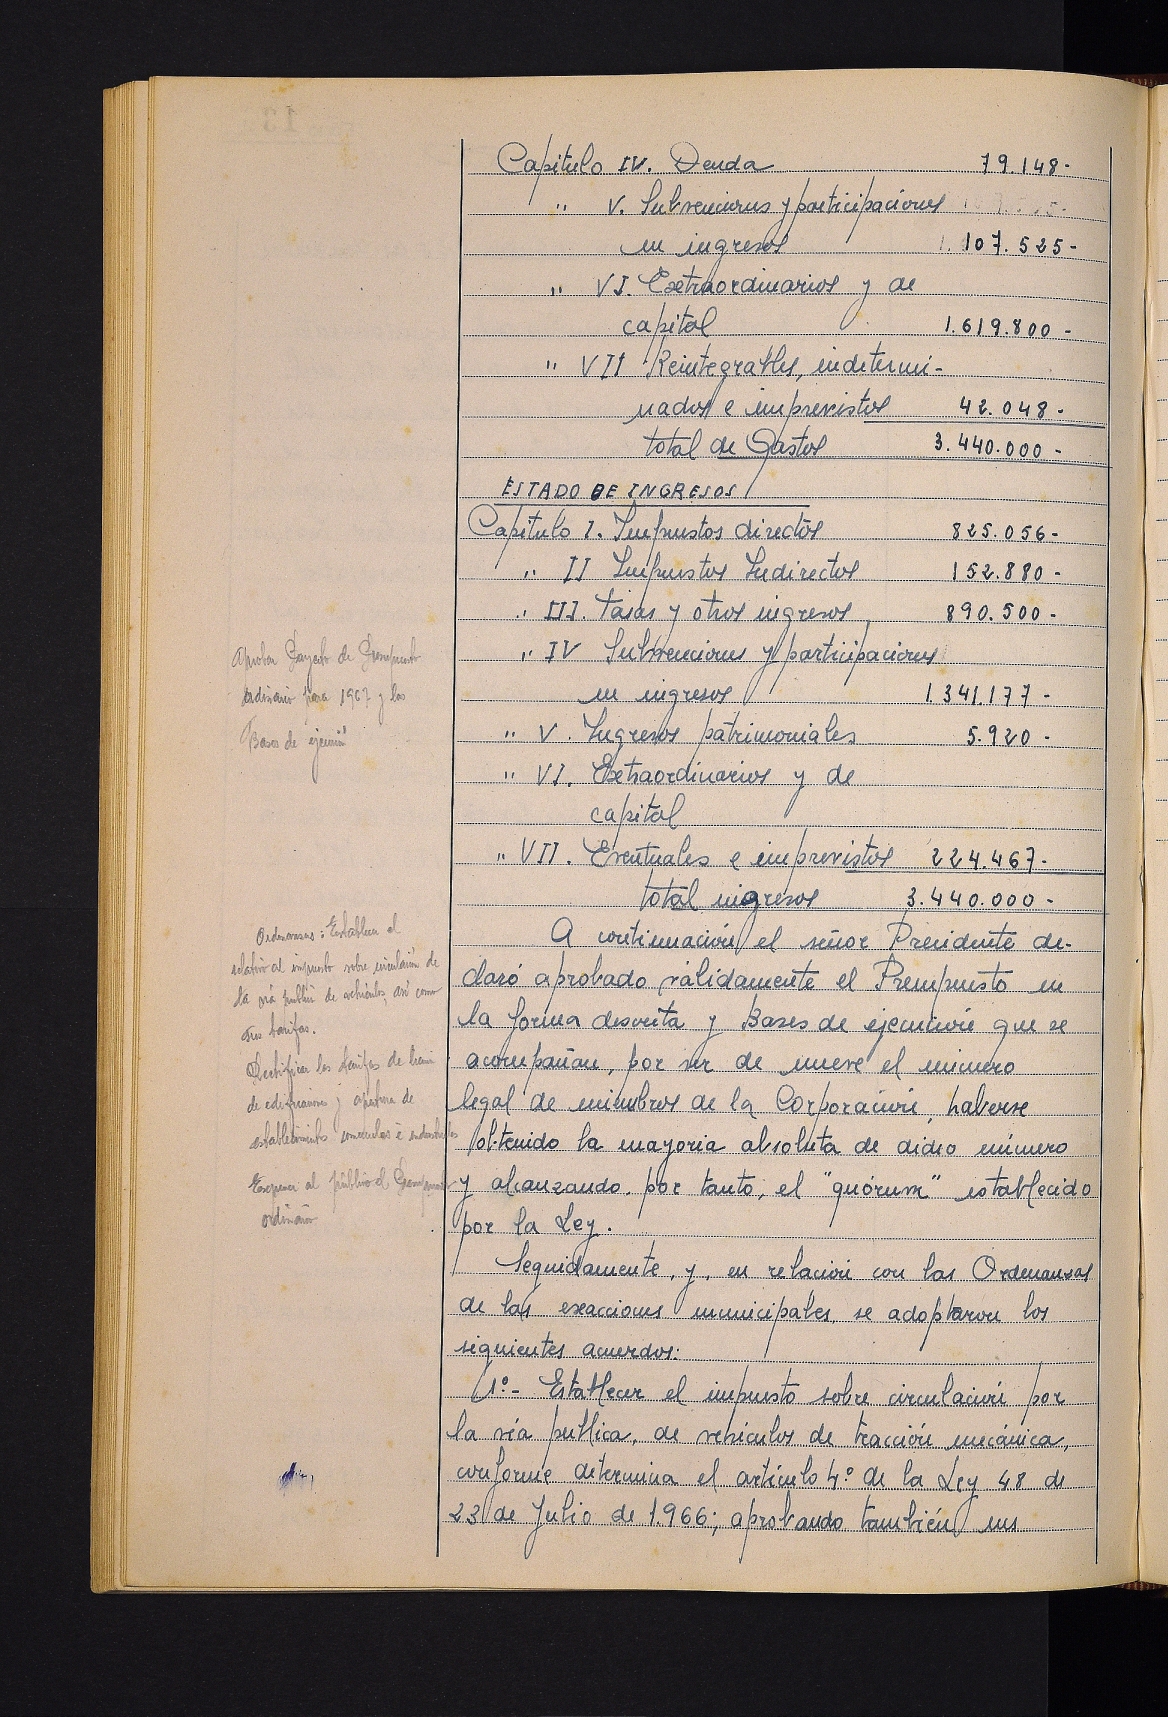 Capitulo IV. Deuda 79.148-
" V. Subvenciones y participaciones
en ingresos 1.107.525-
" VI. Extraordinarios y de
capital 1.619.800-
" VII Reintegrables, indetermi-
nados e imprevistos 42.048-
total de Gastos 3.440.000-
ESTADO DE INGRESOS
Capítulo I. Impuestos directos 825.056-
" II Impuestos Indirectos 152.880-
" III. tasas y otros ingresos 890.500-
" IV Subvenciones y participaciones
en ingresos 1.341.177-
" V. Ingresos patrimoniales 5.920-
" VI. Extraordinarios y de
capital
" VII. Eventuales e imprevistos 224.467-
total ingresos 3.440.000-
A continuación el señor Presidente de-
claró aprobado válidamente el Presupuesto en
la forma descrita y Bases de ejecución que se
acompañan, por ser de nueve el número
legal de miembros de la Corporación, haberse
obtenido la mayoria absoluta de dicho número
y alcanzando, por tanto, el "quórum" establecido
por la Ley.
Seguidamente, y, en relación con las Ordenanzas
de las exacciones municipales, se adoptaron los
siguientes acuerdos:
1º- Establecer el impuesto sobre circulación por
la vía publica, de vehículos de tracción mecánica,
conforme determina el artículo 4º de la Ley 48 de
23 de Julio de 1.966; aprobando también sus
Aprobar Proyecto de Presupuesto
ordinario para 1967 y las
Bases de ejecución
Ordenanzas: Establecer el
relativo al impuesto sobre circulación de
la vía public de vehiculos, así como
sus tarifas.
Rectificar las tarifas de
de edificaciones y apertura de
establecimientos comerciales e industriales
Exponer al público el Presupuesto
ordinario